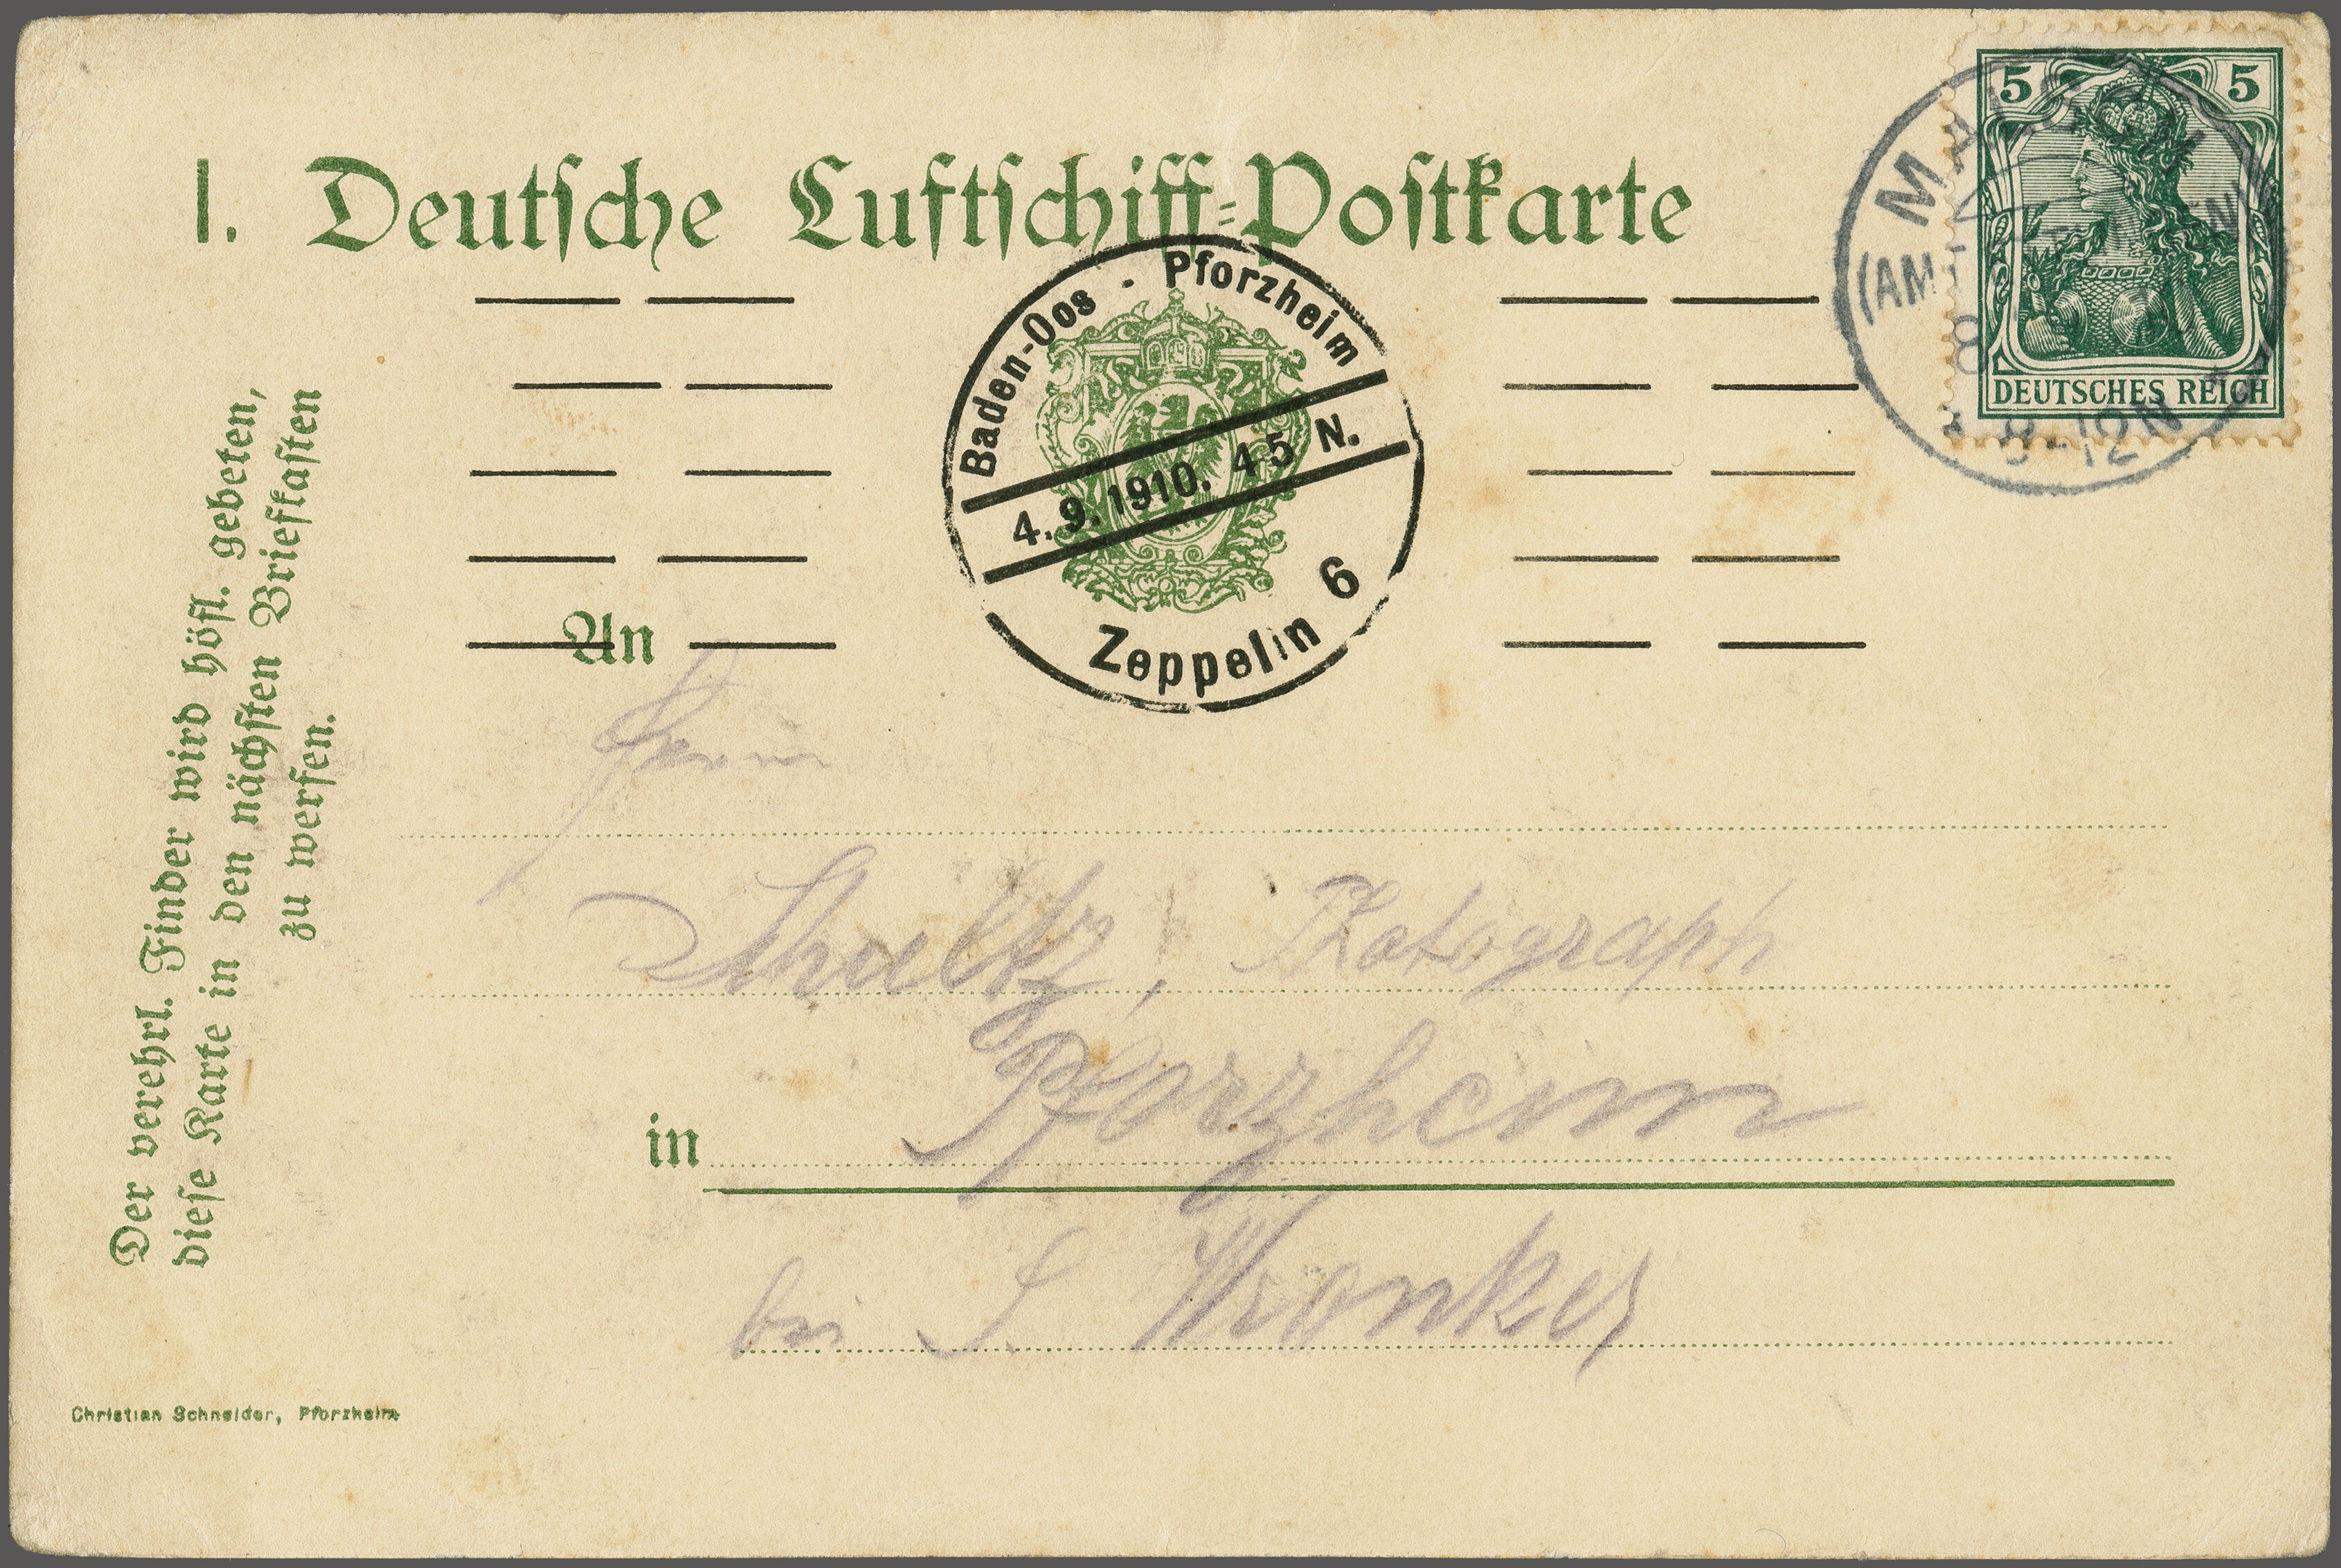 1. Deutsche Luftschiff-Postkarte
5 5
DEUTSCHES REICH
(AM
8-12N
Baden-Oos · Pforzheim
4.9.1910. 4-5 N.
Zeppelin 6
Der verehrl. Finder wird höfl. gebeten,
diese Karte in den nächsten Briefkasten
zu werfen.
An
Herrn
Schultz, Photograph
in Pforzheim
bei S. Wronker
Christian Schneider, Pforzheim